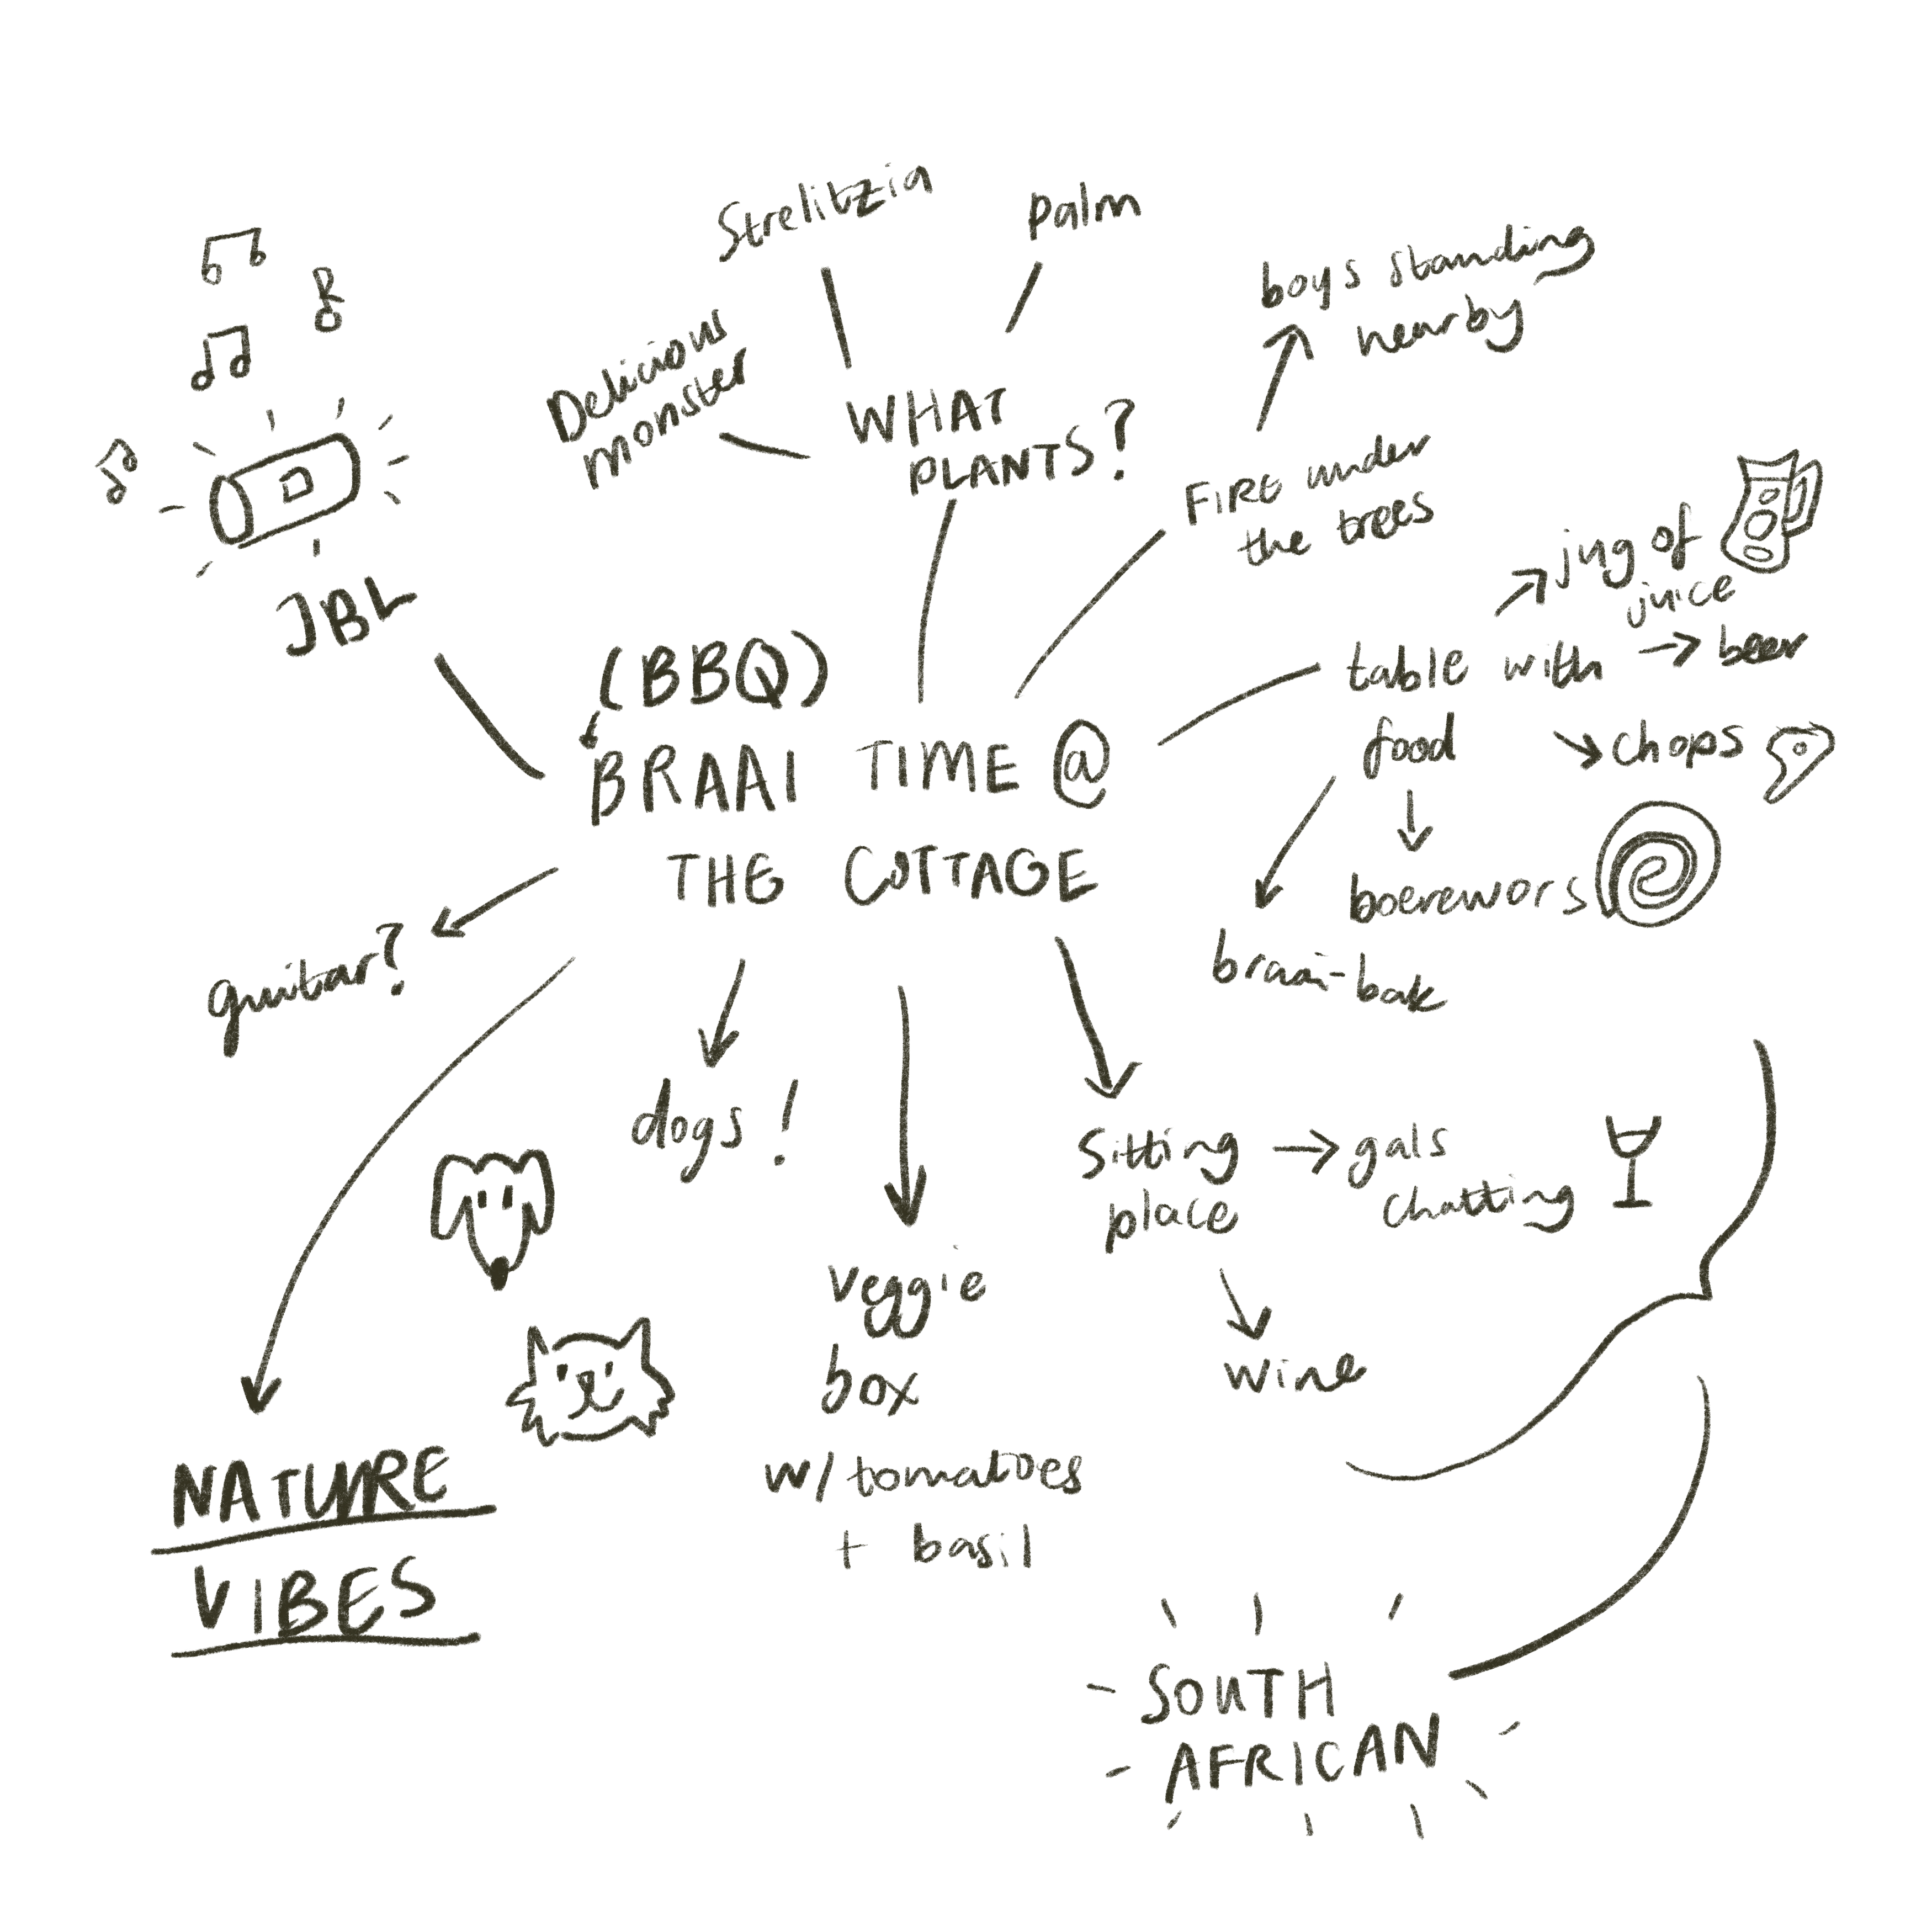 Strelitzia
palm
Delicious
monster
WHAT
PLANTS?
boys standing
nearby
FIRE under
the trees
JBL
(BBQ)
BRAAI TIME @
THE COTTAGE
table with
food
jug of
juice
beer
chops
boerewors
braai-bak
guitar?
dogs!
veggie
box
w/ tomatoes
+ basil
Sitting
place
gals
chatting
wine
NATURE
VIBES
SOUTH
AFRICAN